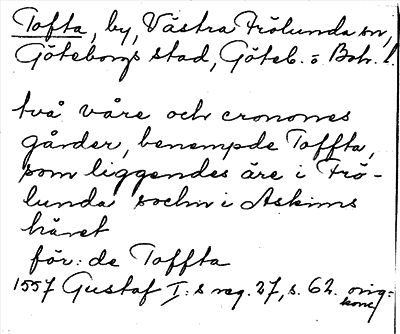 Tofta, by, Västra Frölunda sn,
Göteborgs stad, Göteb. o Boh. l.
två våre och cronones
gårder, benempde Toffta,
som liggendes äre i Frö-
lunda sochn i Askims
häret
för: de Toffta
1557 Gustaf I:s reg. 27, s. 62. orig.-
konc.